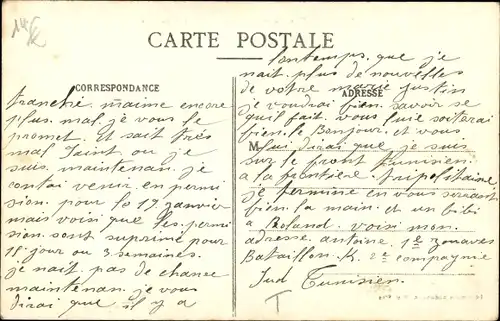 CARTE POSTALE
CORRESPONDANCE
tranché maime encore
plus mal je vous le
promet. Et sait très
mal Saint ou je
suis maintenan. je
contai venir en permi
sion pour le 17 janvier
mais voisi que les permi
sion sont suprimé pour
15 jour ou 3 semaines.
je nait pas de chance
maintenan je vous
dirai que il y a
lontemps que je
nait plus de nouvelles
de votre marie justin
ADRESSE
je voudrai bien savoir se
quil fait vous lui
bien le Bonjour et vous
M
lui dirai que je suis
sur le front tunisien
a la frontière tripolitaine
je termine en vous serrant
bien la main et un bibi
a Roland voisi mon
adresse antoine 1e zouaves
Bataillon K 2e compagnie
Sud Tunisien